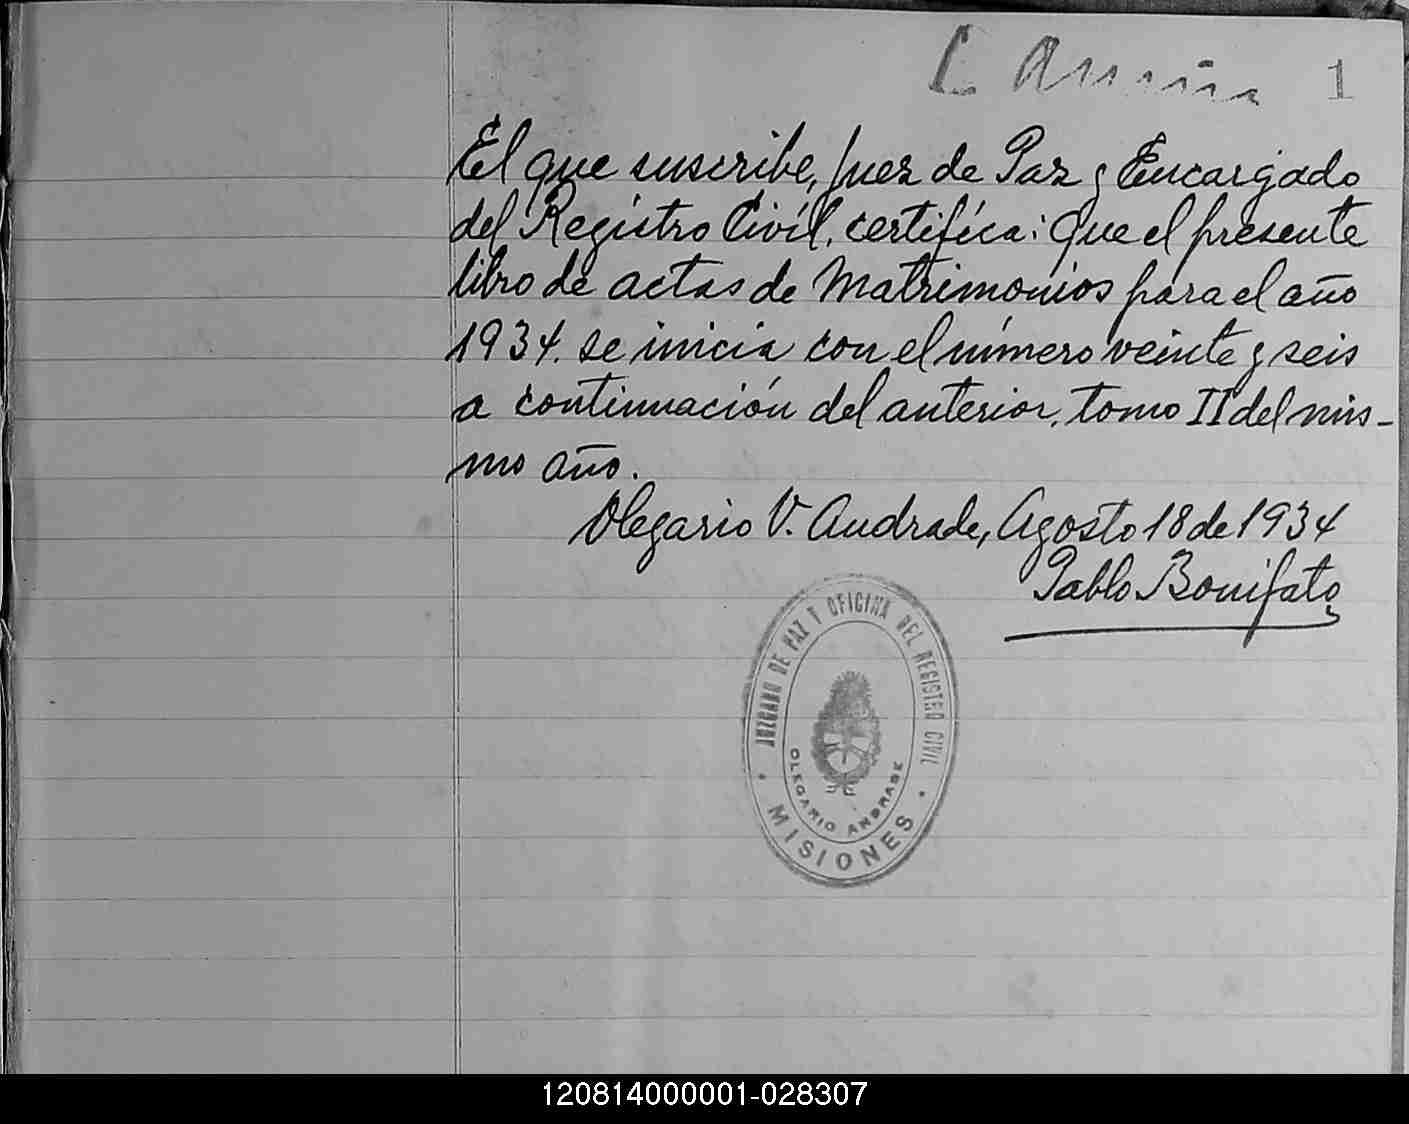 1
El que suscribe, Juez de Paz y Encargado
del Registro Civíl, certifíca: Que el presente
libro de actas de Matrimonios para el año
1934. se inicia con el número veinte y seis
a continuación del anterior, tomo II del mis-
mo año.
Olegario V. Andrade, Agosto 18 de 1934
Pablo Bonifato
JUZGADO DE PAZ Y OFICINA DEL REGISTRO CIVIL
OLEGARIO ANDRADE
MISIONES
120814000001-028307